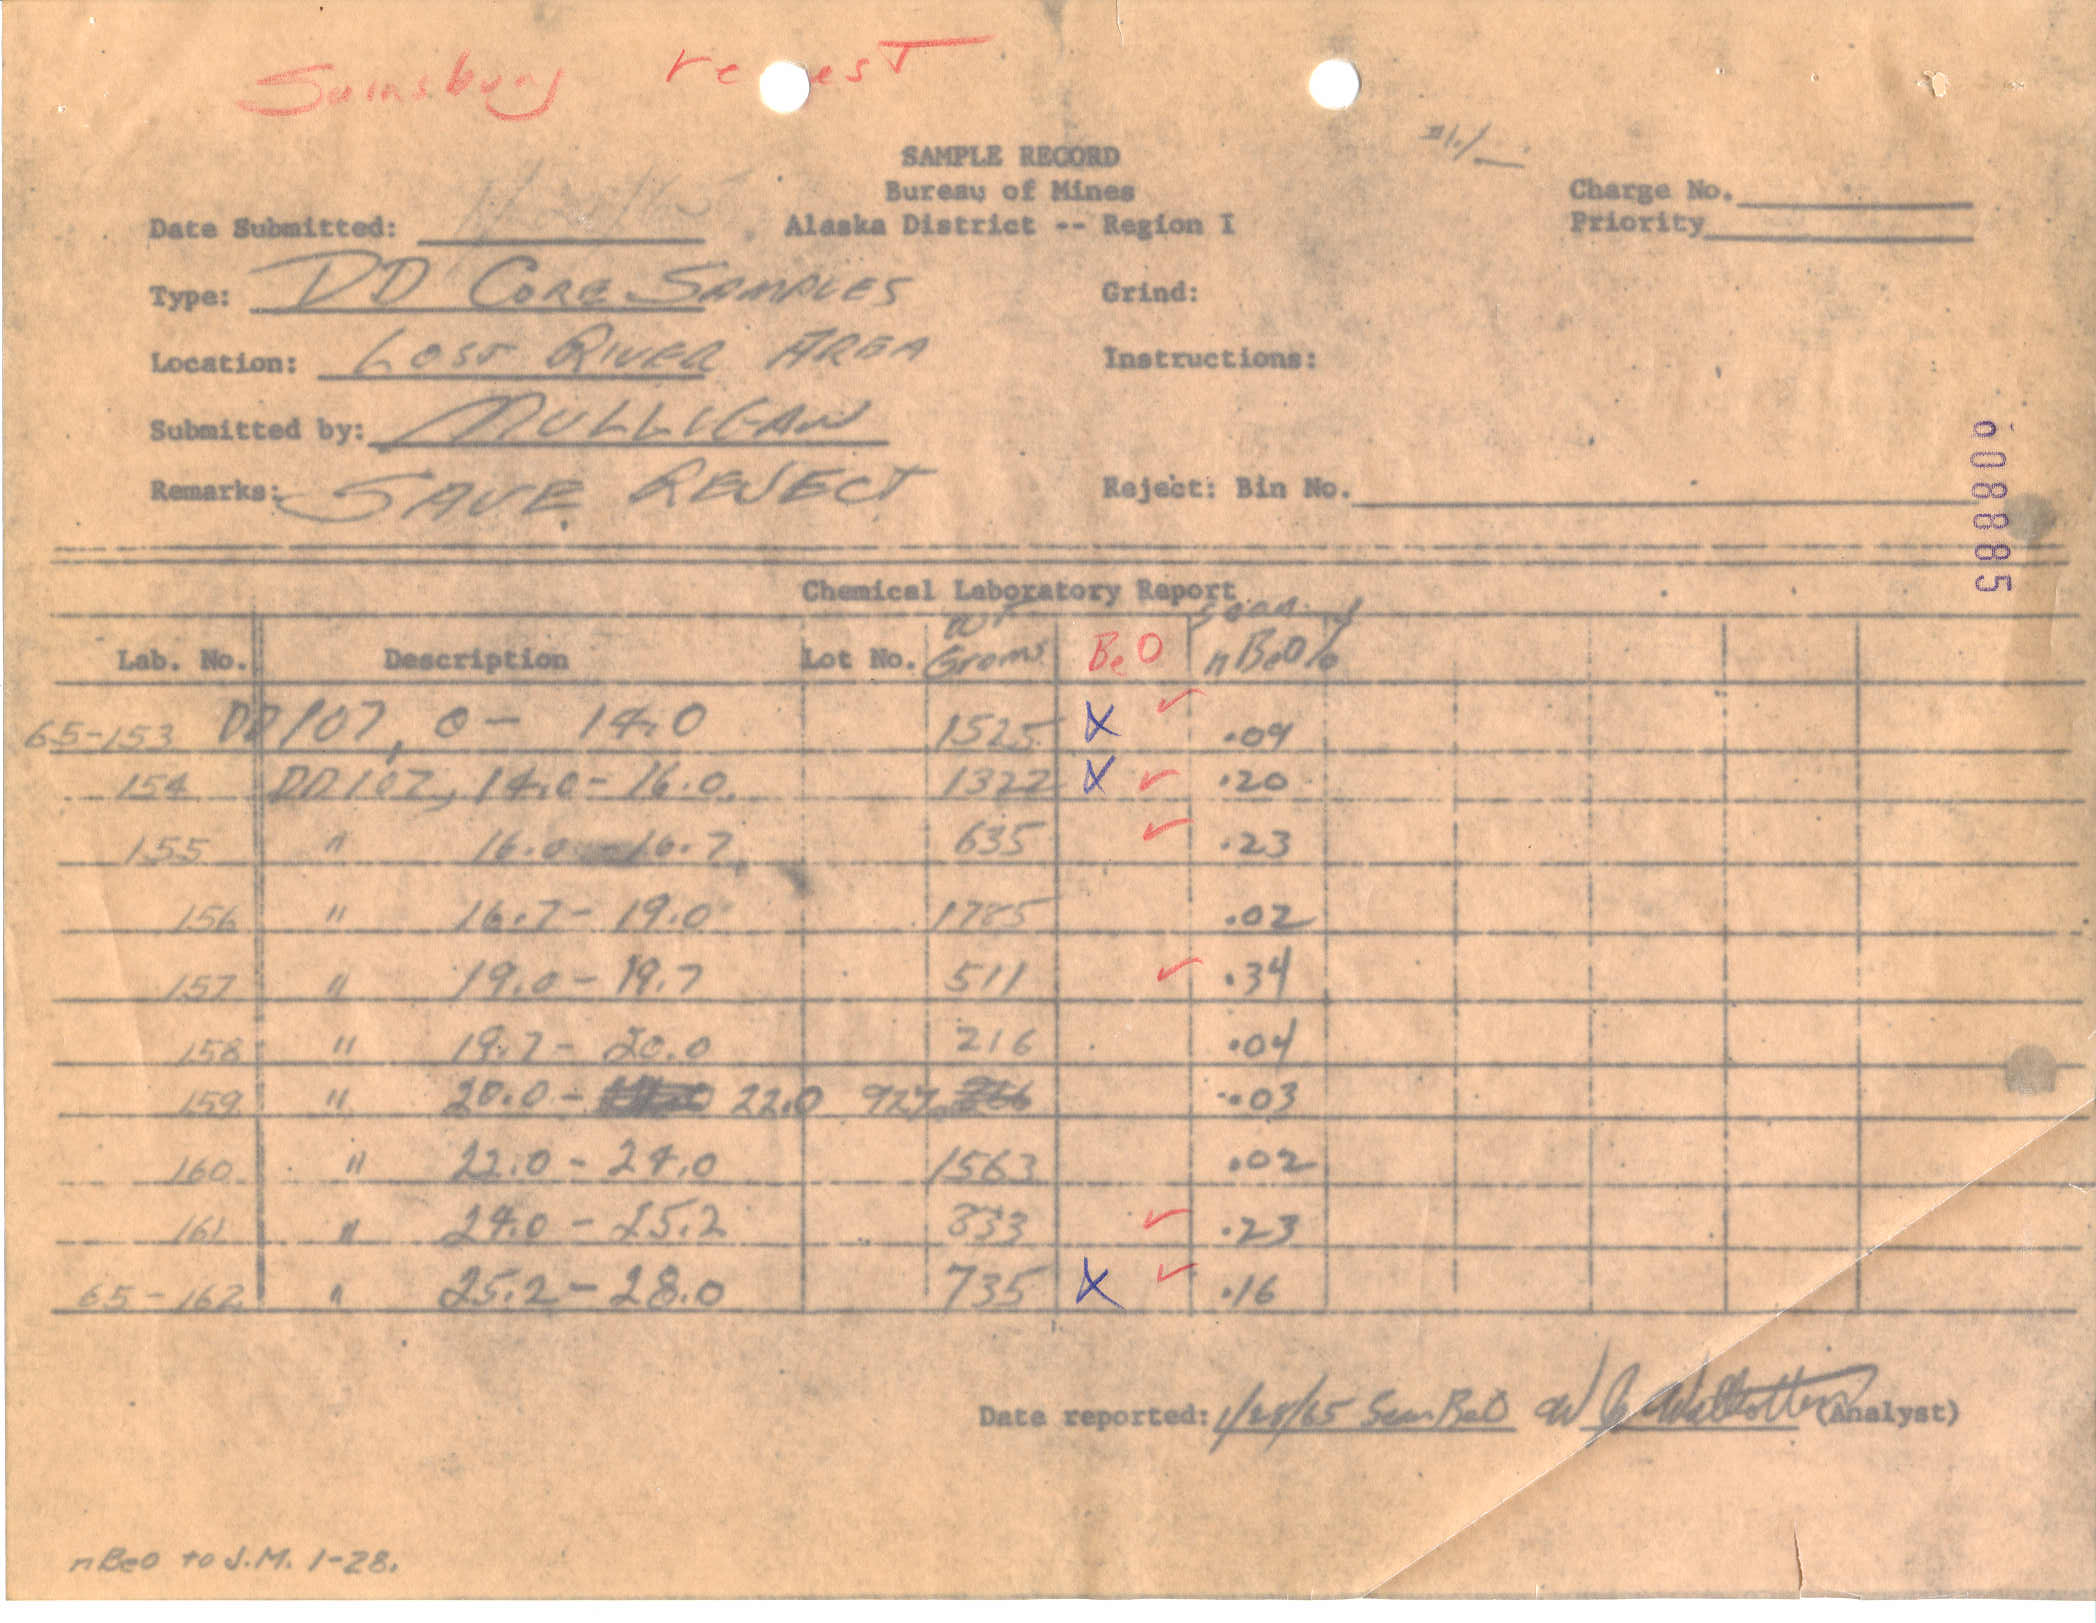 Sainsbury re est
SAMPLE RECORD
Bureau of Mines
Alaska District -- Region I
Charge No.
Priority
Date Submitted:
Type: DD CORE SAMPLES
Grind:
Location: LOST RIVER AREA
Instructions:
Submitted by: MULLIGAN
Remarks: SAVE REJECT
Reject: Bin No.
608885
Chemical Laboratory Report
Lab. No. Description Lot No. WT Grams BeO nBeO%
65-153 DD107, 0 - 14.0 1525 X ✓ .09
154 DD107, 14.0 - 16.0 1322 X ✓ .20
155 " 16.0 - 16.7 635 ✓ .23
156 " 16.7 - 19.0 1785 .02
157 " 19.0 - 19.7 511 ✓ .34
158 " 19.7 - 20.0 216 .04
159 " 20.0 - 22.0 927 .03
160 " 22.0 - 24.0 1563 .02
161 " 24.0 - 25.2 833 ✓ .23
65-162 " 25.2 - 28.0 735 X ✓ .16
Date reported: 1/28/65 BeO (Analyst)
nBeO to J.M. 1-28.